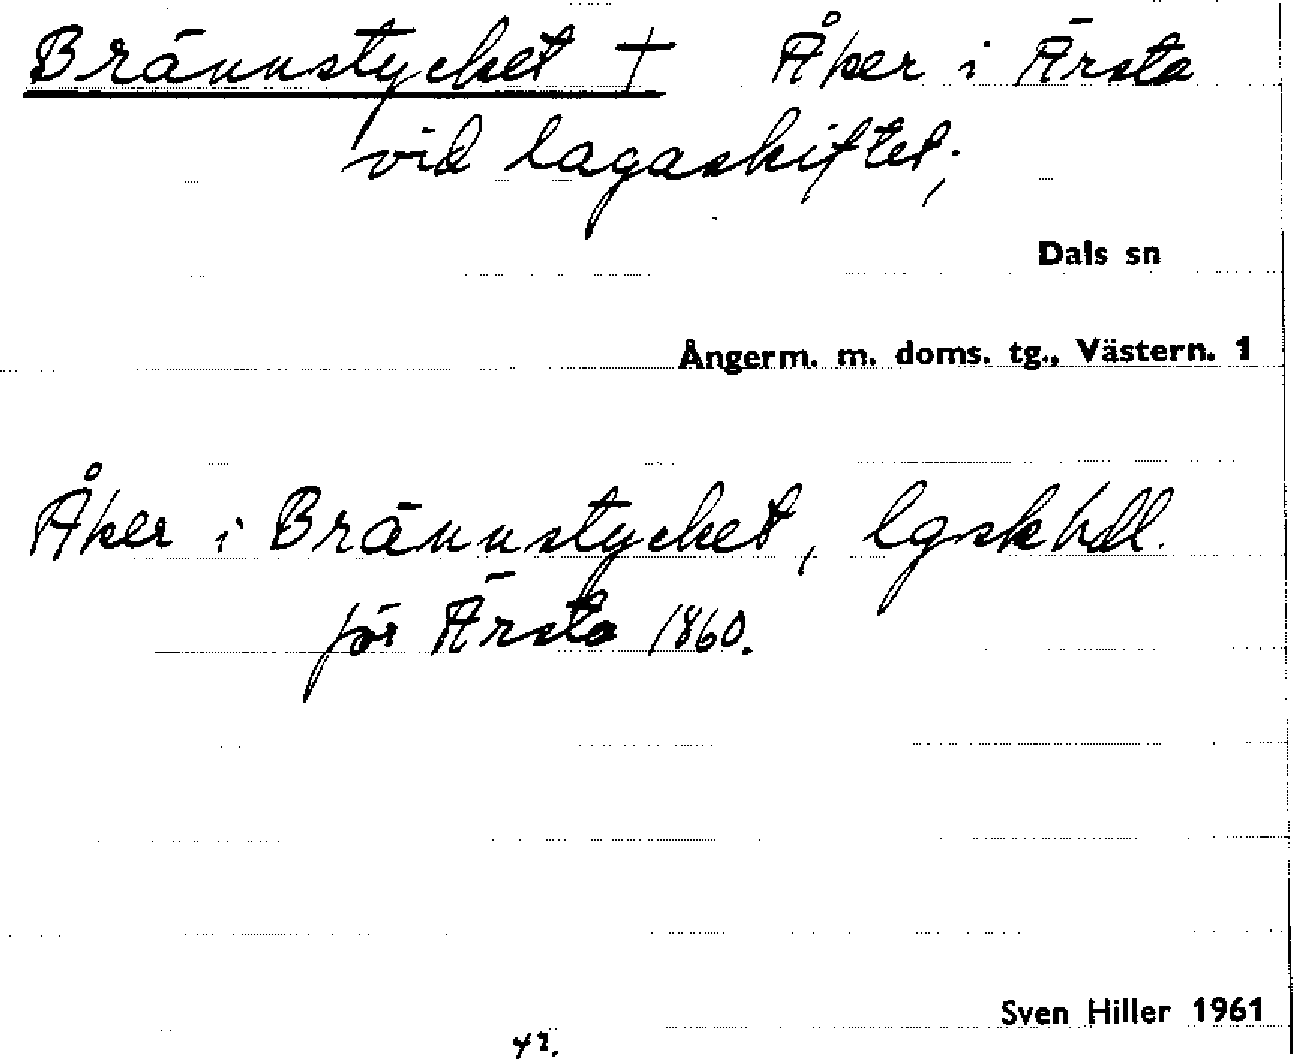 Brännstycket † Åker i Ärsta
vid lagaskiftet;
Dals sn
Ångerm. m. doms. tg., Västern. 1
Åker i Brännstycket, lgskhdl.
för Ärsta 1860.
Sven Hiller 1961